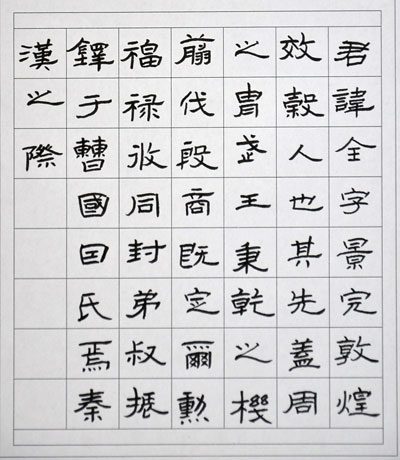 君諱全字景完敦煌
效穀人也其先蓋周
之胄武王秉乾之機
翦伐殷商既定爾勲
福禄攸同封弟叔振
鐸于曹國因氏焉秦
漢之際